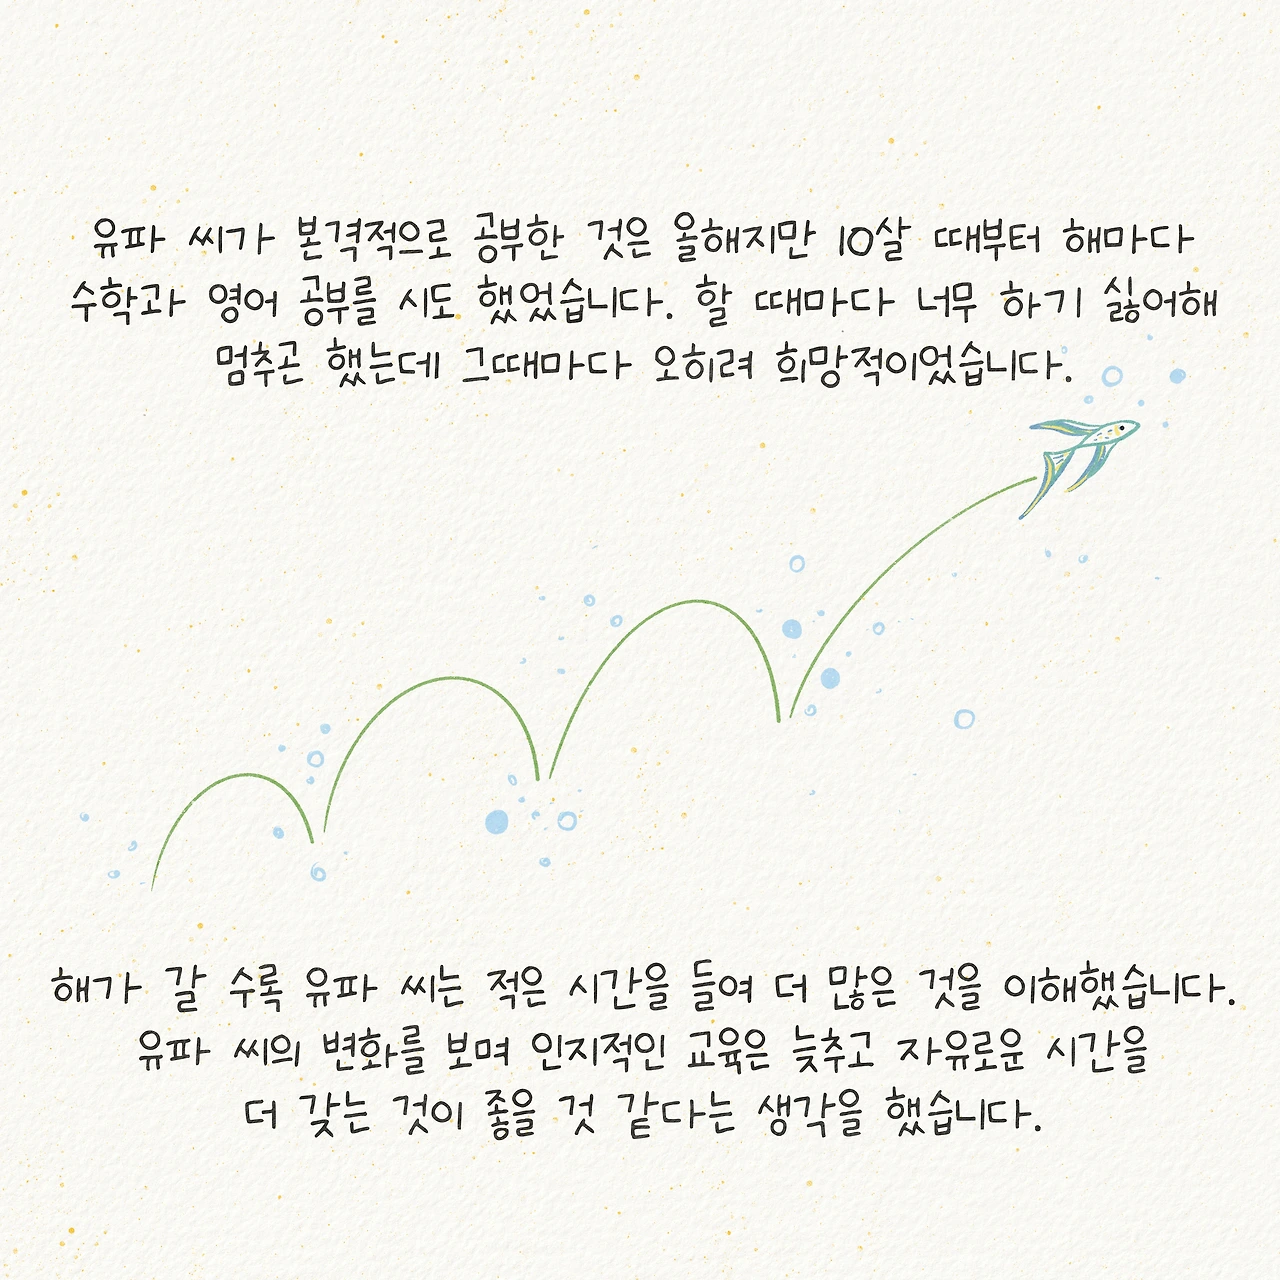 유파 씨가 본격적으로 공부한 것은 올해지만 10살 때부터 해마다
수학과 영어 공부를 시도 했었습니다. 할 때마다 너무 하기 싫어해
멈추곤 했는데 그때마다 오히려 희망적이었습니다.
해가 갈 수록 유파 씨는 적은 시간을 들여 더 많은 것을 이해했습니다.
유파 씨의 변화를 보며 인지적인 교육은 늦추고 자유로운 시간을
더 갖는 것이 좋을 것 같다는 생각을 했습니다.